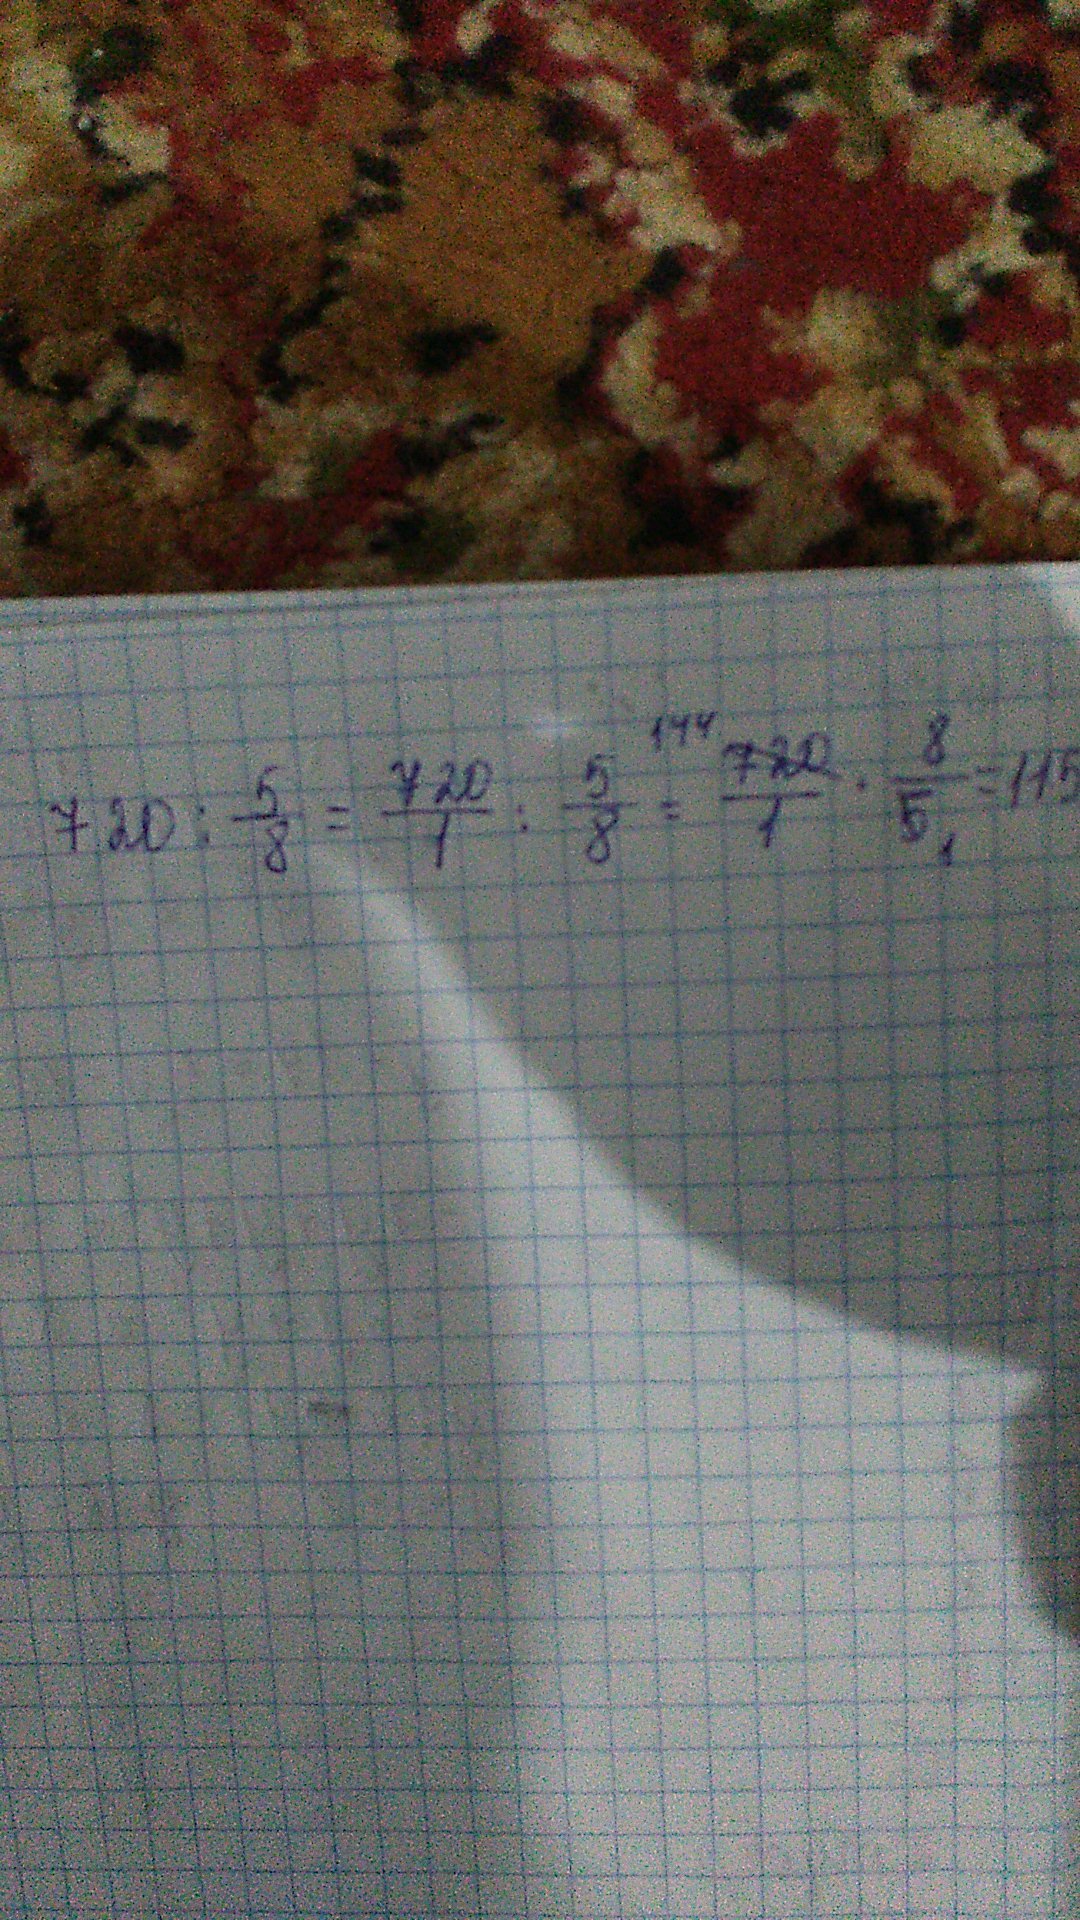 720 : 5/8 = 720/1 : 5/8 = 144 720/1 · 8/5 1 = 115